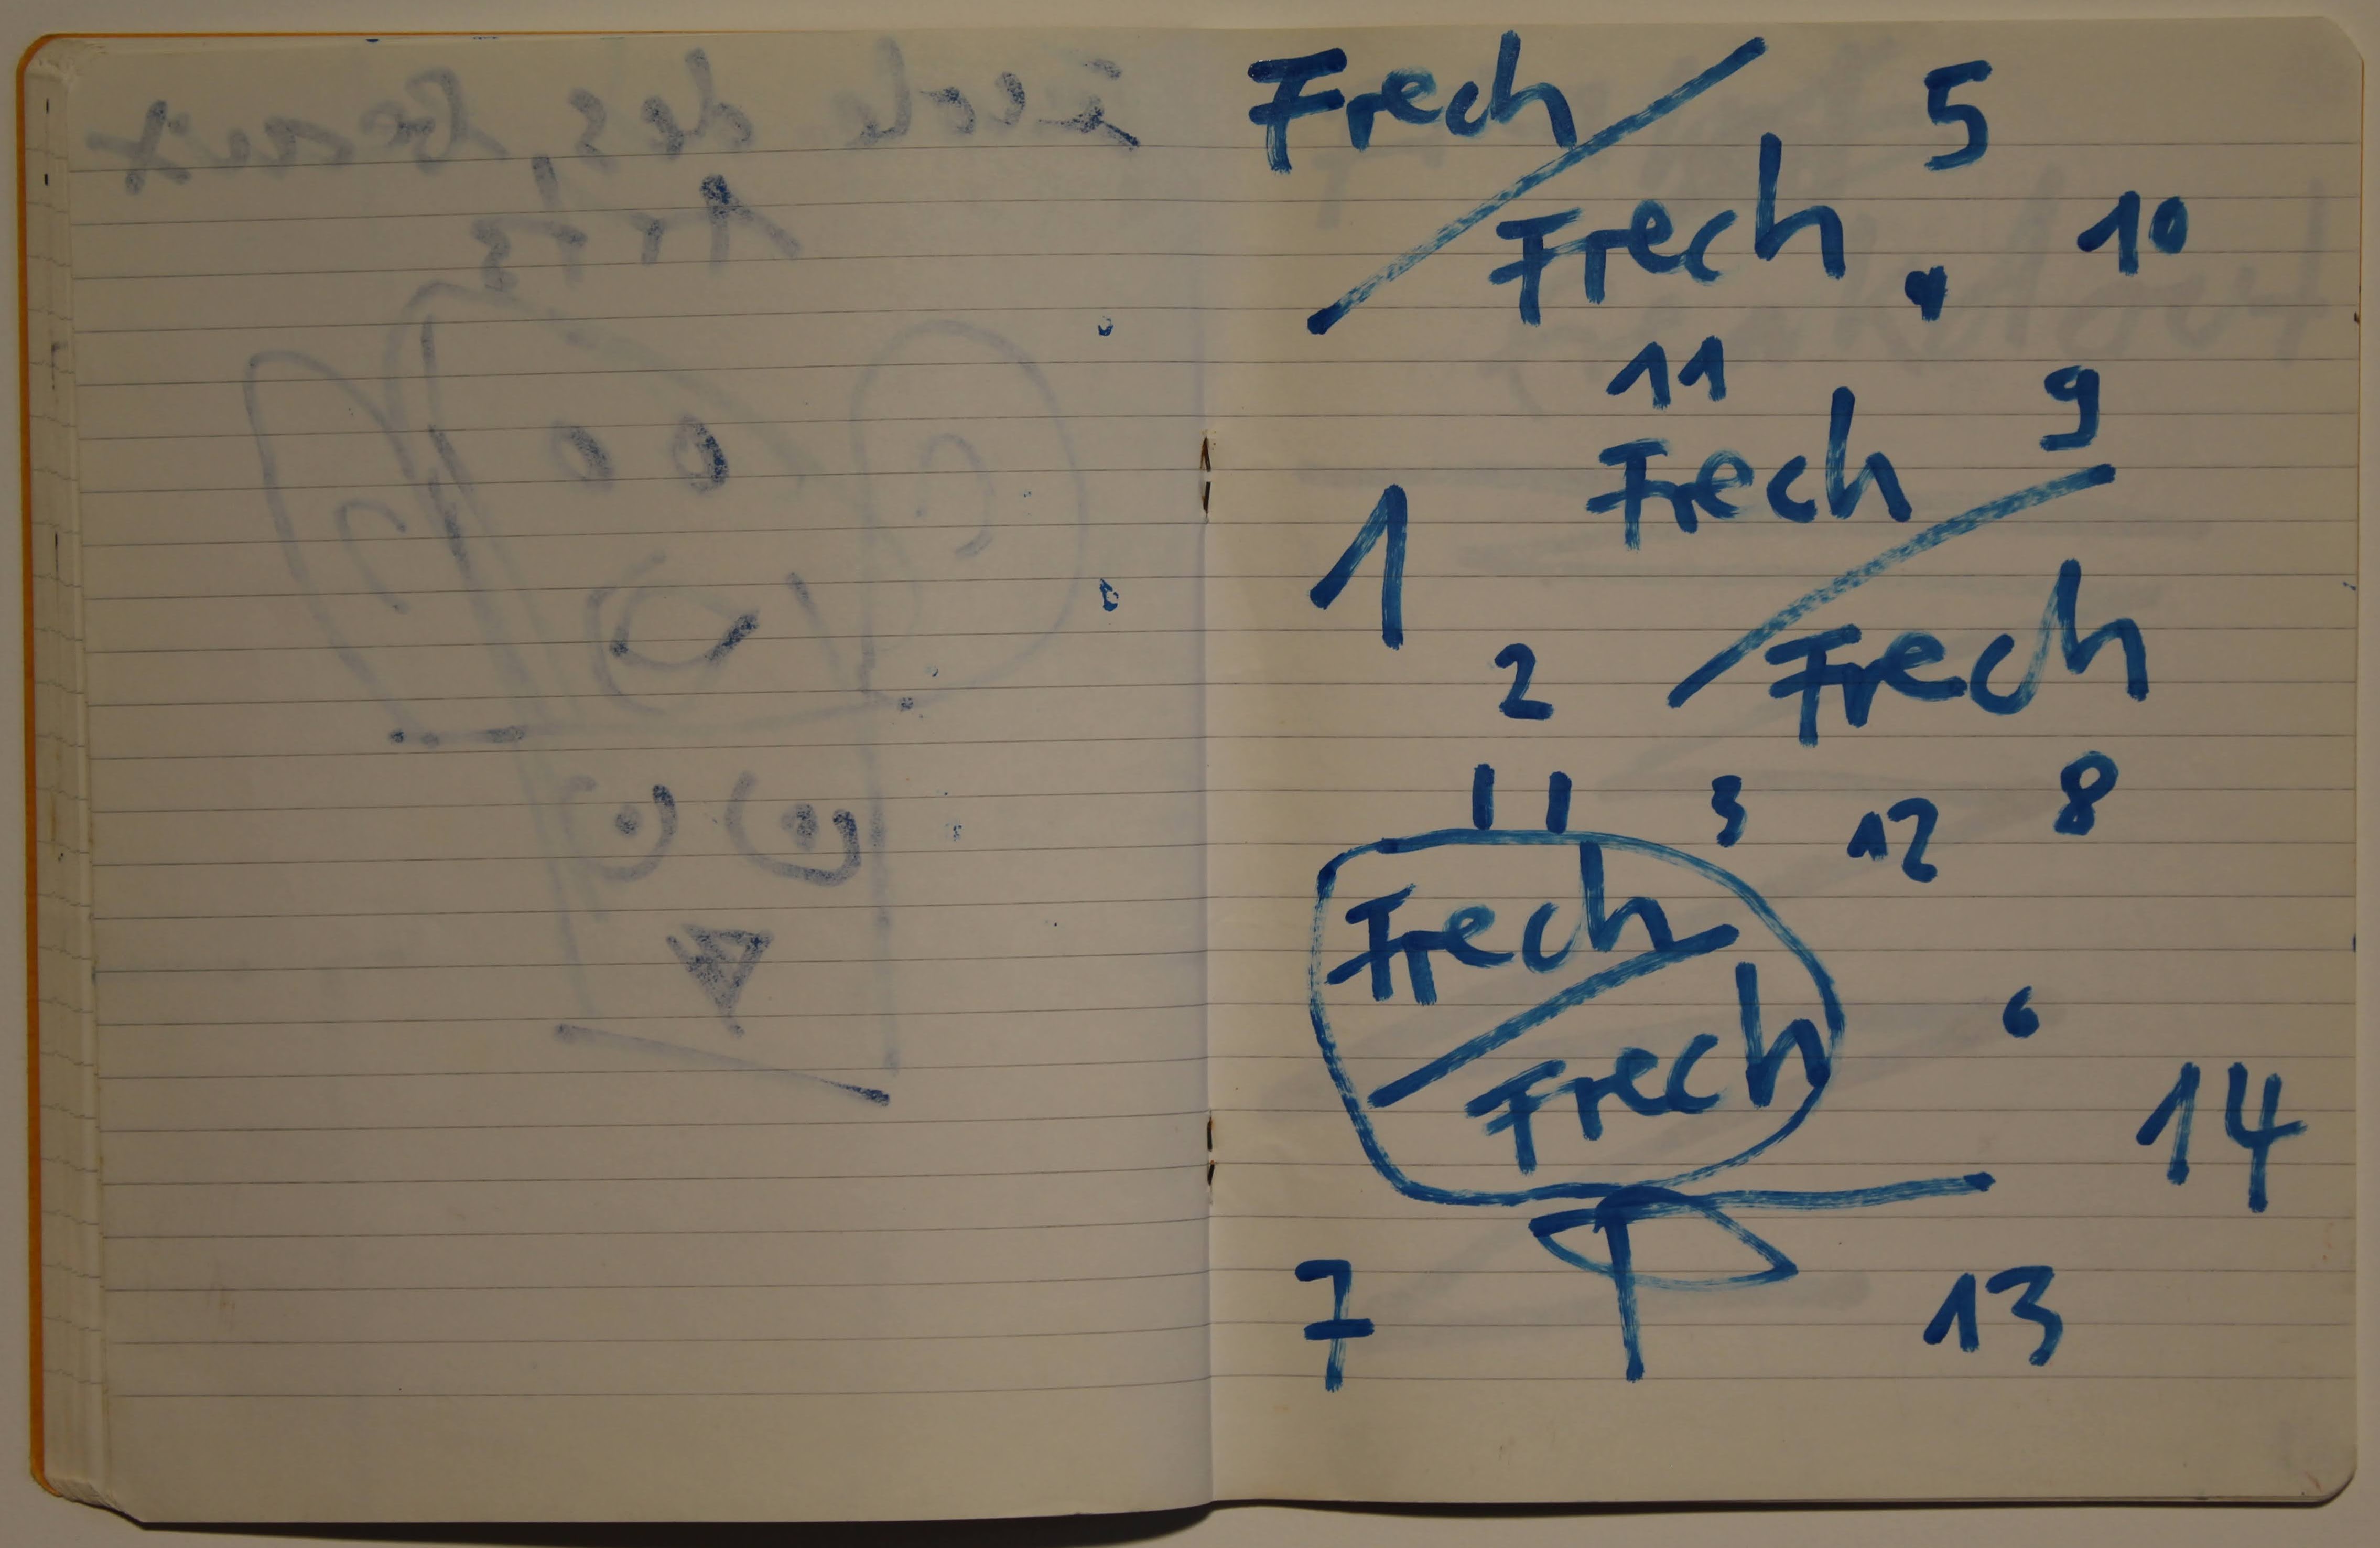 École des Beaux
Arts
Frech
5
Frech
10
4
11
9
Frech
1
Frech
2
11
3
12
8
Frech
6
Frech
14
7
13